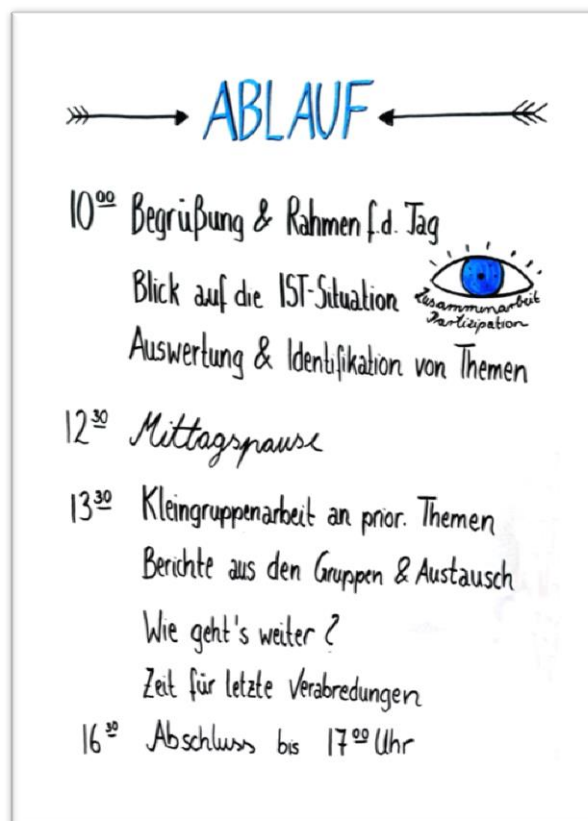 ABLAUF
10⁰⁰ Begrüßung & Rahmen f.d. Tag
Blick auf die IST-Situation
Zusammenarbeit
Partizipation
Auswertung & Identifikation von Themen
12³⁰ Mittagspause
13³⁰ Kleingruppenarbeit an prior. Themen
Berichte aus den Gruppen & Austausch
Wie geht's weiter?
Zeit für letzte Verabredungen
16³⁰ Abschluss bis 17⁰⁰ Uhr